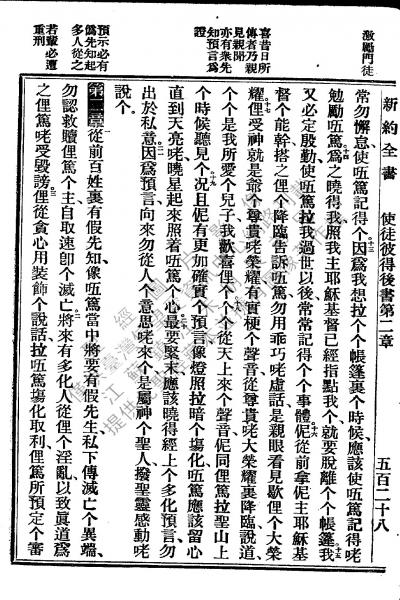 新約全書　使徒彼得後書第二章　五百二十八
激勵門徒
喜昔日所
傳者乃親
見親聞
亦有衆先
知預言爲
證
預示必有
僞先知起
多人從之
若輩必遭
重刑
常勿懈怠、使㑚篤記得個、因爲我想拉個個帳篷裏個時候、應該使㑚篤記得咾
勉勵㑚篤、爲之曉得我、照我主耶穌基督已經指點我個、就要脫離個個帳篷、我
又必定殷勤、使㑚篤拉我過世以後、常常記得個個事體、伲從前拿伲主耶穌基
督個能幹搭之俚個降臨、告訴㑚篤、勿用乖巧咾虛話、是親眼看見歇俚個大榮
耀、俚受神就是爺個尊貴咾榮耀、有實梗個聲音、從尊貴咾大榮耀裏降臨、說道、
個個是我所愛個兒子、我歡喜俚個、個個從天上來個聲音、伲同俚篤拉聖山上
個時候聽見個、况且伲有更加確實個預言、像燈照拉暗個塲化、㑚篤應該留心、
直到天亮咾曉星起來、照着㑚篤個心、最要緊末應該曉得經上個多化預言、勿
出於私意、因爲預言、向來勿從人個意思咾來個、是屬神個聖人、撥聖靈感動咾
說個、
第二章　從前百姓裏有假先知、像㑚篤當中將要有假先生、私下傳滅亡個異端、
勿認救贖俚篤個主、自取速卽個滅亡、將來有多化人從俚個淫亂、以致眞道爲
之俚篤咾受毀謗、俚從貪心用裝飾個說話、拉㑚篤塲化取利、俚篤所預定個審